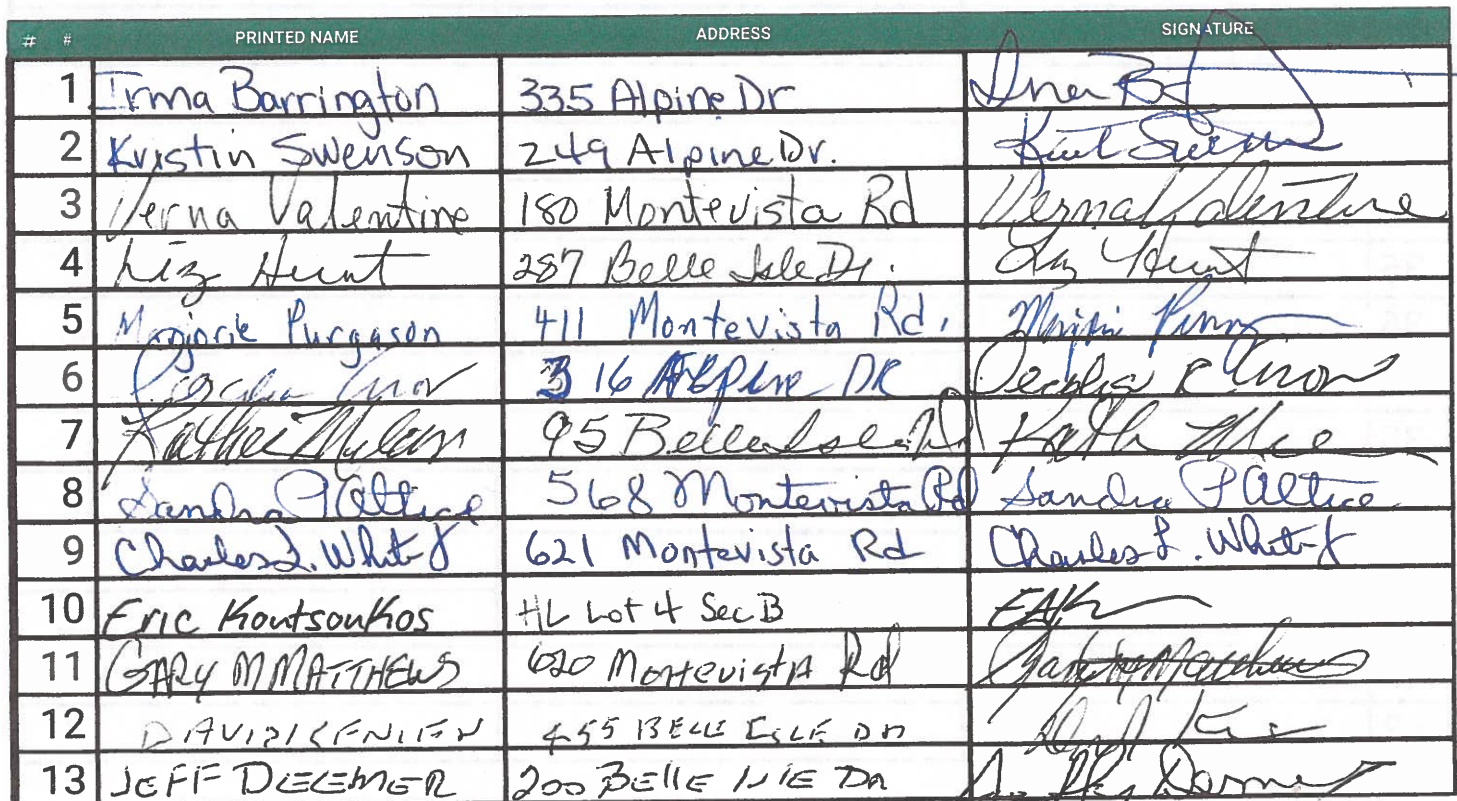 # # PRINTED NAME ADDRESS SIGNATURE
1 Irma Barrington 335 Alpine Dr
2 Kristin Swenson 249 Alpine Dr.
3 Verna Valentine 180 Montevista Rd Verna Valentine
4 Liz Hunt 287 Belle Isle Dr. Liz Hunt
5 Marjorie Purgason 411 Montevista Rd.
6 316 Alpine DR
7 95 Belle Isle
8 Sandra P Altice 568 Montevista Rd Sandra P Altice
9 Charles L. White Jr 621 Montevista Rd Charles L. White Jr
10 Eric Koutsoukos HL Lot 4 Sec B
11 GARY M MATTHEWS 620 Montevista Rd
12 DAVID 455 BELLE ISLE DR
13 JEFF 200 BELLE ISLE DR